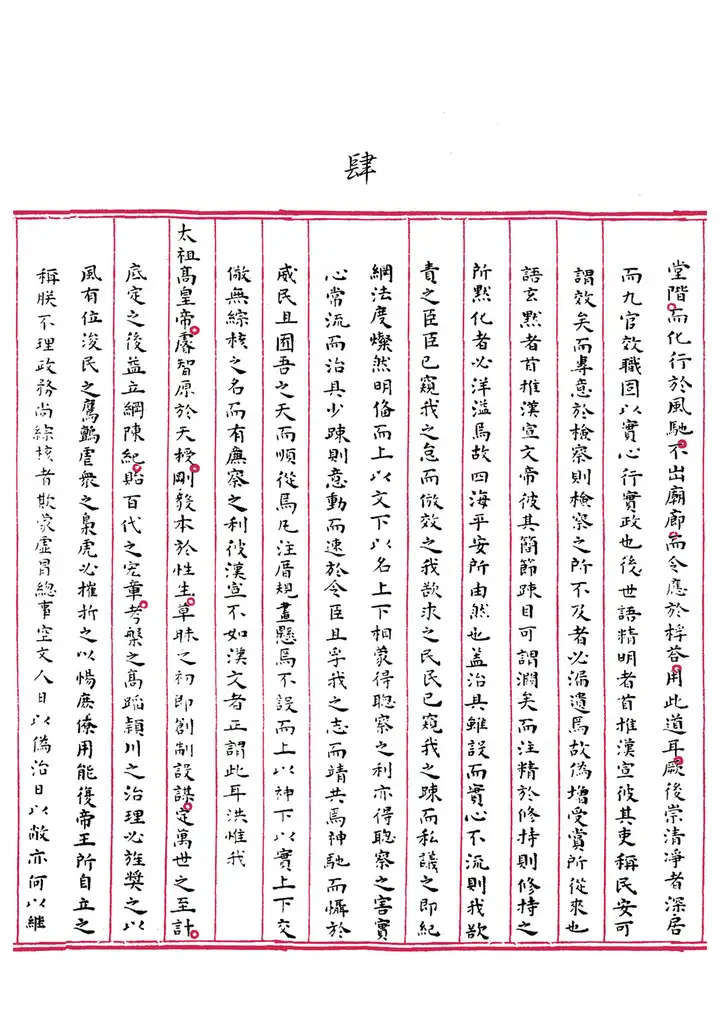 肆
堂階而化行於風馳不出廟廊而令應於桴荅用此道耳厥後崇清凈者深居
而九官效職固以實心行實政也後世語精明者首推漢宣彼其吏稱民安可
謂效矣而專意於檢察則檢察之所不及者必漏遺焉故偽增受賞所從來也
語玄默者首推漢宣文帝彼其簡節疎目可謂濶矣而注精於修持則修持之
所黙化者必洋溢焉故四海平安所由然也盖治具雖設而實心不流則我欲
責之臣臣已窺我之怠而倣效之我欲求之民民已窺我之疎而私議之即紀
綱法度燦然明備而上以文下以名上下相蒙得聦察之利亦得聦察之害實
心常流而治具少疎則意動而速於令臣且孚我之志而靖共焉神馳而懾於
威民且囿吾之天而順從焉凡注厝規畫懸焉不設而上以神下以實上下交
儆無綜核之名而有廉察之利彼漢宣不如漢文者正謂此耳洪惟我
太祖髙皇帝睿智原於天授剛毅本於性生草昧之初即創制設謀定萬世之至計
底定之後益立綱陳紀貽百代之宏章考槃之髙蹈潁川之治理必旌奬之以
風有位浚民之鷹鸇虐衆之梟虎必摧折之以惕庶僚用能復帝王所自立之
稱朕不理政務尚綜核者欺蒙虛冒總事空文人日以偽治日以敝亦何以繼